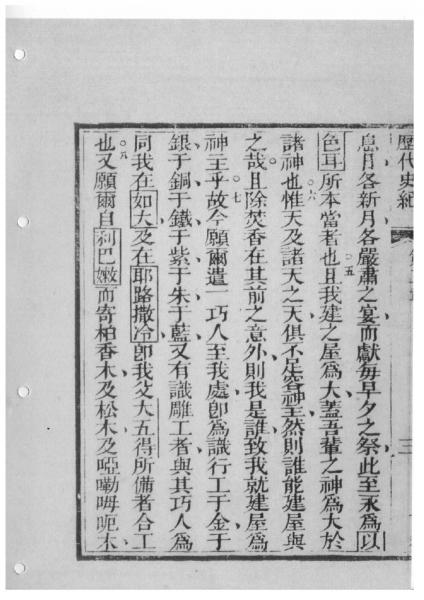 歷代史紀
三
息月各新月各嚴肅之宴而獻每早夕之祭此至永為以
色耳所本當者也五且我建之屋為大蓋吾輩之神為大於
諸神也六惟天及諸天之天俱不足容神至然則誰能建屋與
之哉且除焚香在其前之意外則我是誰致我就建屋為
神主乎七故今願爾遣一巧人至我處卽為識行工于金于
銀于銅于鐵于紫于朱于藍又有識雕工者與其巧人為
同我在如大及在耶路撒冷卽我父大五得所備者合工
也八又願爾自利巴嫩而寄柏香木及松木及啞嘞呣呃木